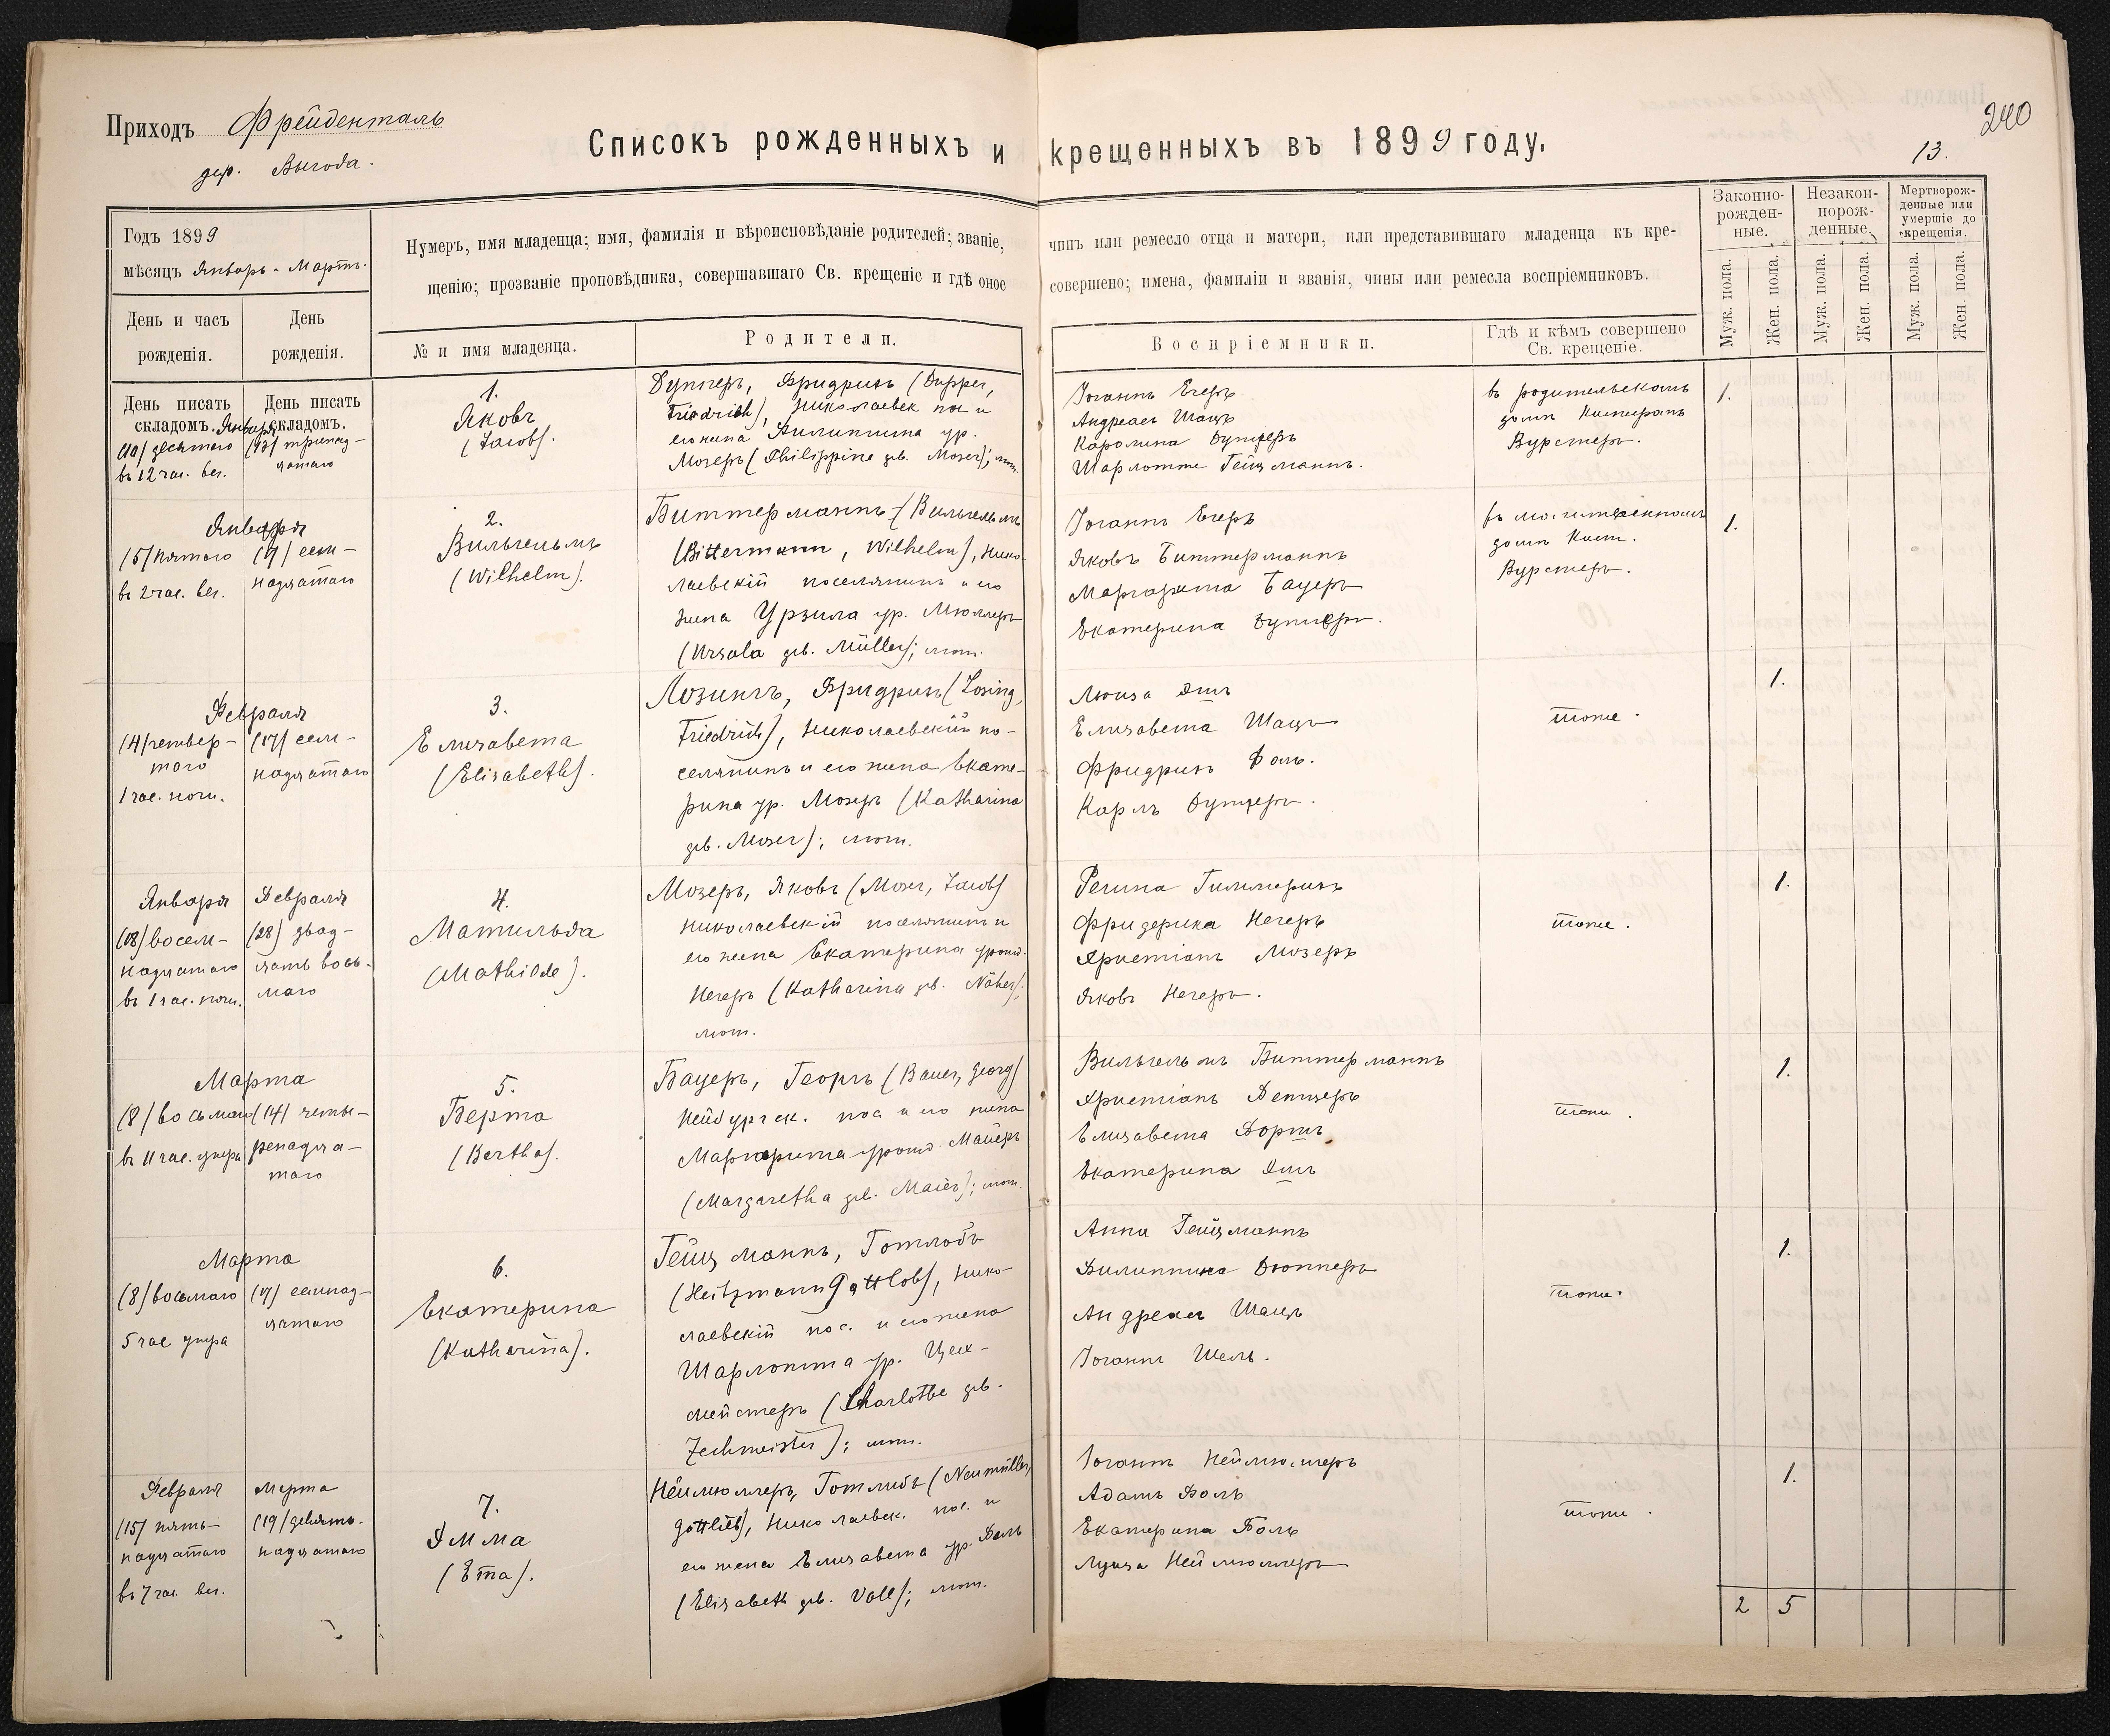 Приходъ Фрейденталь
дер. Выгода.
Списокъ рожденныхъ и крещенныхъ въ 1899 году.
240
13.
Годъ 1899
мѣсяцъ Январь - Мартъ.
Нумеръ, имя младенца; имя, фамилія и вѣроисповѣданіе родителей; званіе, чинъ или ремесло отца и матери, или представившаго младенца къ кре-
щенію; прозваніе проповѣдника, совершавшаго Св. крещеніе и гдѣ оное совершено; имена, фамиліи и званія, чины или ремесла воспріемниковъ.
Законно-
рожден-
ные.
Незакон-
норож-
денные.
Мертворож-
денные или
умершіе до
крещенія.
Муж. пола.
Жен. пола.
Муж. пола.
Жен. пола.
Муж. пола.
Жен. пола.
День и часъ
рожденія.
День
рожденія.
№ и имя младенца.
Родители.
Воспріемники.
Гдѣ и кѣмъ совершено
Св. крещеніе.
День писать
складомъ.
День писать
складомъ.
Января
(10) десятаго
въ 12 час. веч.
(13) тринад-
цатаго
1.
Яковъ
(Jacob).
Дупперъ, Фридрихъ (Dupper,
Friedrich), Николаевск пос и
его жена Филиппина ур.
Мозеръ (Philippine geb. Moser); лют.
Іоганнъ Егеръ
Андреасъ Шацъ
Каролина Дупперъ
Шарлотте Гейцманнъ.
въ родительскомъ
домѣ Кистеромъ
Вурстеръ.
1.
Января
(5) пятаго
въ 2 час. веч.
(17) сем-
надцатаго
2.
Вильгельмъ
(Wilhelm).
Биттерманнъ, Вильгельмъ
(Bittermann, Wilhelm), Нико-
лаевскій поселянинъ и его
жена Урзула ур. Мюллеръ
(Ursula geb. Müller); лют.
Іоганнъ Егеръ
Яковъ Биттерманнъ
Маргарета Бауеръ
Екатерина Дупперъ.
въ молитвенномъ
домѣ Кист.
Вурстеръ.
1.
Февраля
(4) четвер-
таго
1 час. ночи.
(17) сем-
надцатаго
3.
Елизавета
(Elisabeth).
Лозингъ, Фридрихъ (Losing,
Friedrich), Николаевскій по-
селянинъ и его жена Екате-
рина ур. Мозеръ (Katharina
geb. Moser); лют.
Люиза
Елизавета Шацъ
Фридрихъ Фоль.
Карлъ Дупперъ.
тоже.
1.
Января
(18) восем-
надцатаго
въ 1 час. ночи.
Февраля
(28) двад-
цать вось-
маго
4.
Матильда
(Mathilde).
Мозеръ, Яковъ (Moser, Jacob)
Николаевскій поселянинъ и
его жена Екатерина урожд.
Негеръ (Katharina geb. Näher);
лют.
Регина Гиммерихъ
Фридерика Негеръ
Христіанъ Мозеръ
Яковъ Негеръ.
тоже.
1.
Марта
(8) восьмаго
въ 11 час. утра
(14) четы-
ренадца-
таго
5.
Берта
(Bertha).
Бауеръ, Георгъ (Bauer, Georg)
Нейбургск. пос и его жена
Маргарита урожд. Майеръ
(Margaretha geb. Maier); лют.
Вильгельмъ Биттерманнъ
Христіанъ
Елизавета
Екатерина
тоже.
1.
Марта
(8) восьмаго
5 час утра
(17) семнад-
цатаго
6.
Екатерина
(Katharina).
Гейцманнъ, Готлобъ
(Heitzmann Gottlob), Нико-
лаевскій пос. и его жена
Шарлотта ур. Цех-
мейстеръ (Charlotte geb.
Zechmeister); лют.
Анна Гейцманнъ
Филиппина Дюпперъ
Андреасъ Шацъ
Іоганнъ Шель.
тоже.
1.
Февраля
(15) пять-
надцатаго
въ 7 час. веч.
Марта
(19) девять-
надцатаго
7.
Эмма
(Ema).
Неймюллеръ, Готлибъ (Neumüller,
Gottlieb), Николаевск. пос. и
его жена Елизавета ур. Фолль
(Elisabeth geb. Voll); лют.
Іоганнъ Неймюллеръ
Адамъ Фоль
Екатерина Фоль
Луиза Неймюллеръ
тоже.
1.
2 5